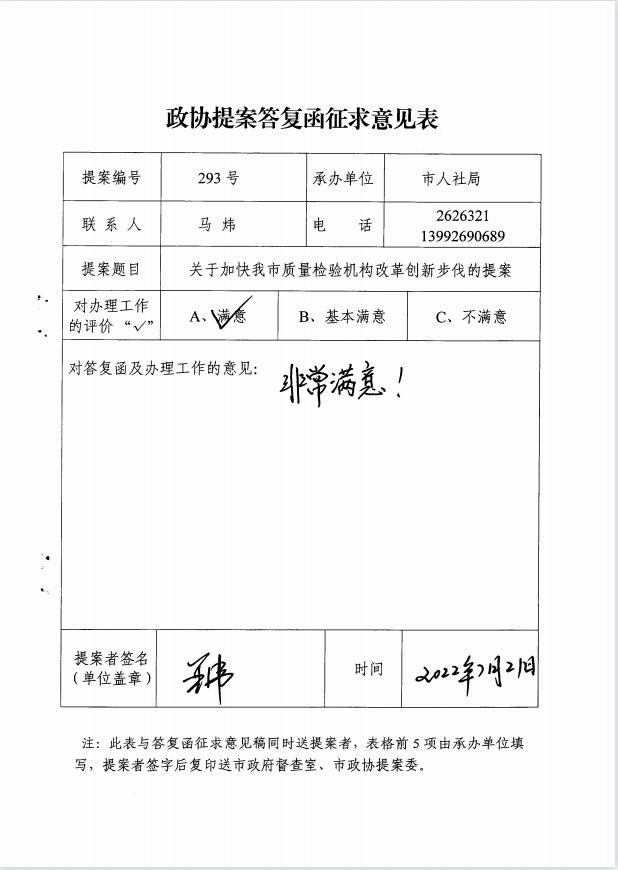 政协提案答复函征求意见表
提案编号 293 号 承办单位 市人社局
联系人 马炜 电话 2626321
13992690689
提案题目 关于加快我市质量检验机构改革创新步伐的提案
对办理工作
的评价“✓” A、满意 ✓ B、基本满意 C、不满意
对答复函及办理工作的意见: 非常满意!
提案者签名
(单位盖章) 时间 2022年7月21日
注:此表与答复函征求意见稿同时送提案者,表格前 5 项由承办单位填
写,提案者签字后复印送市政府督查室、市政协提案委。